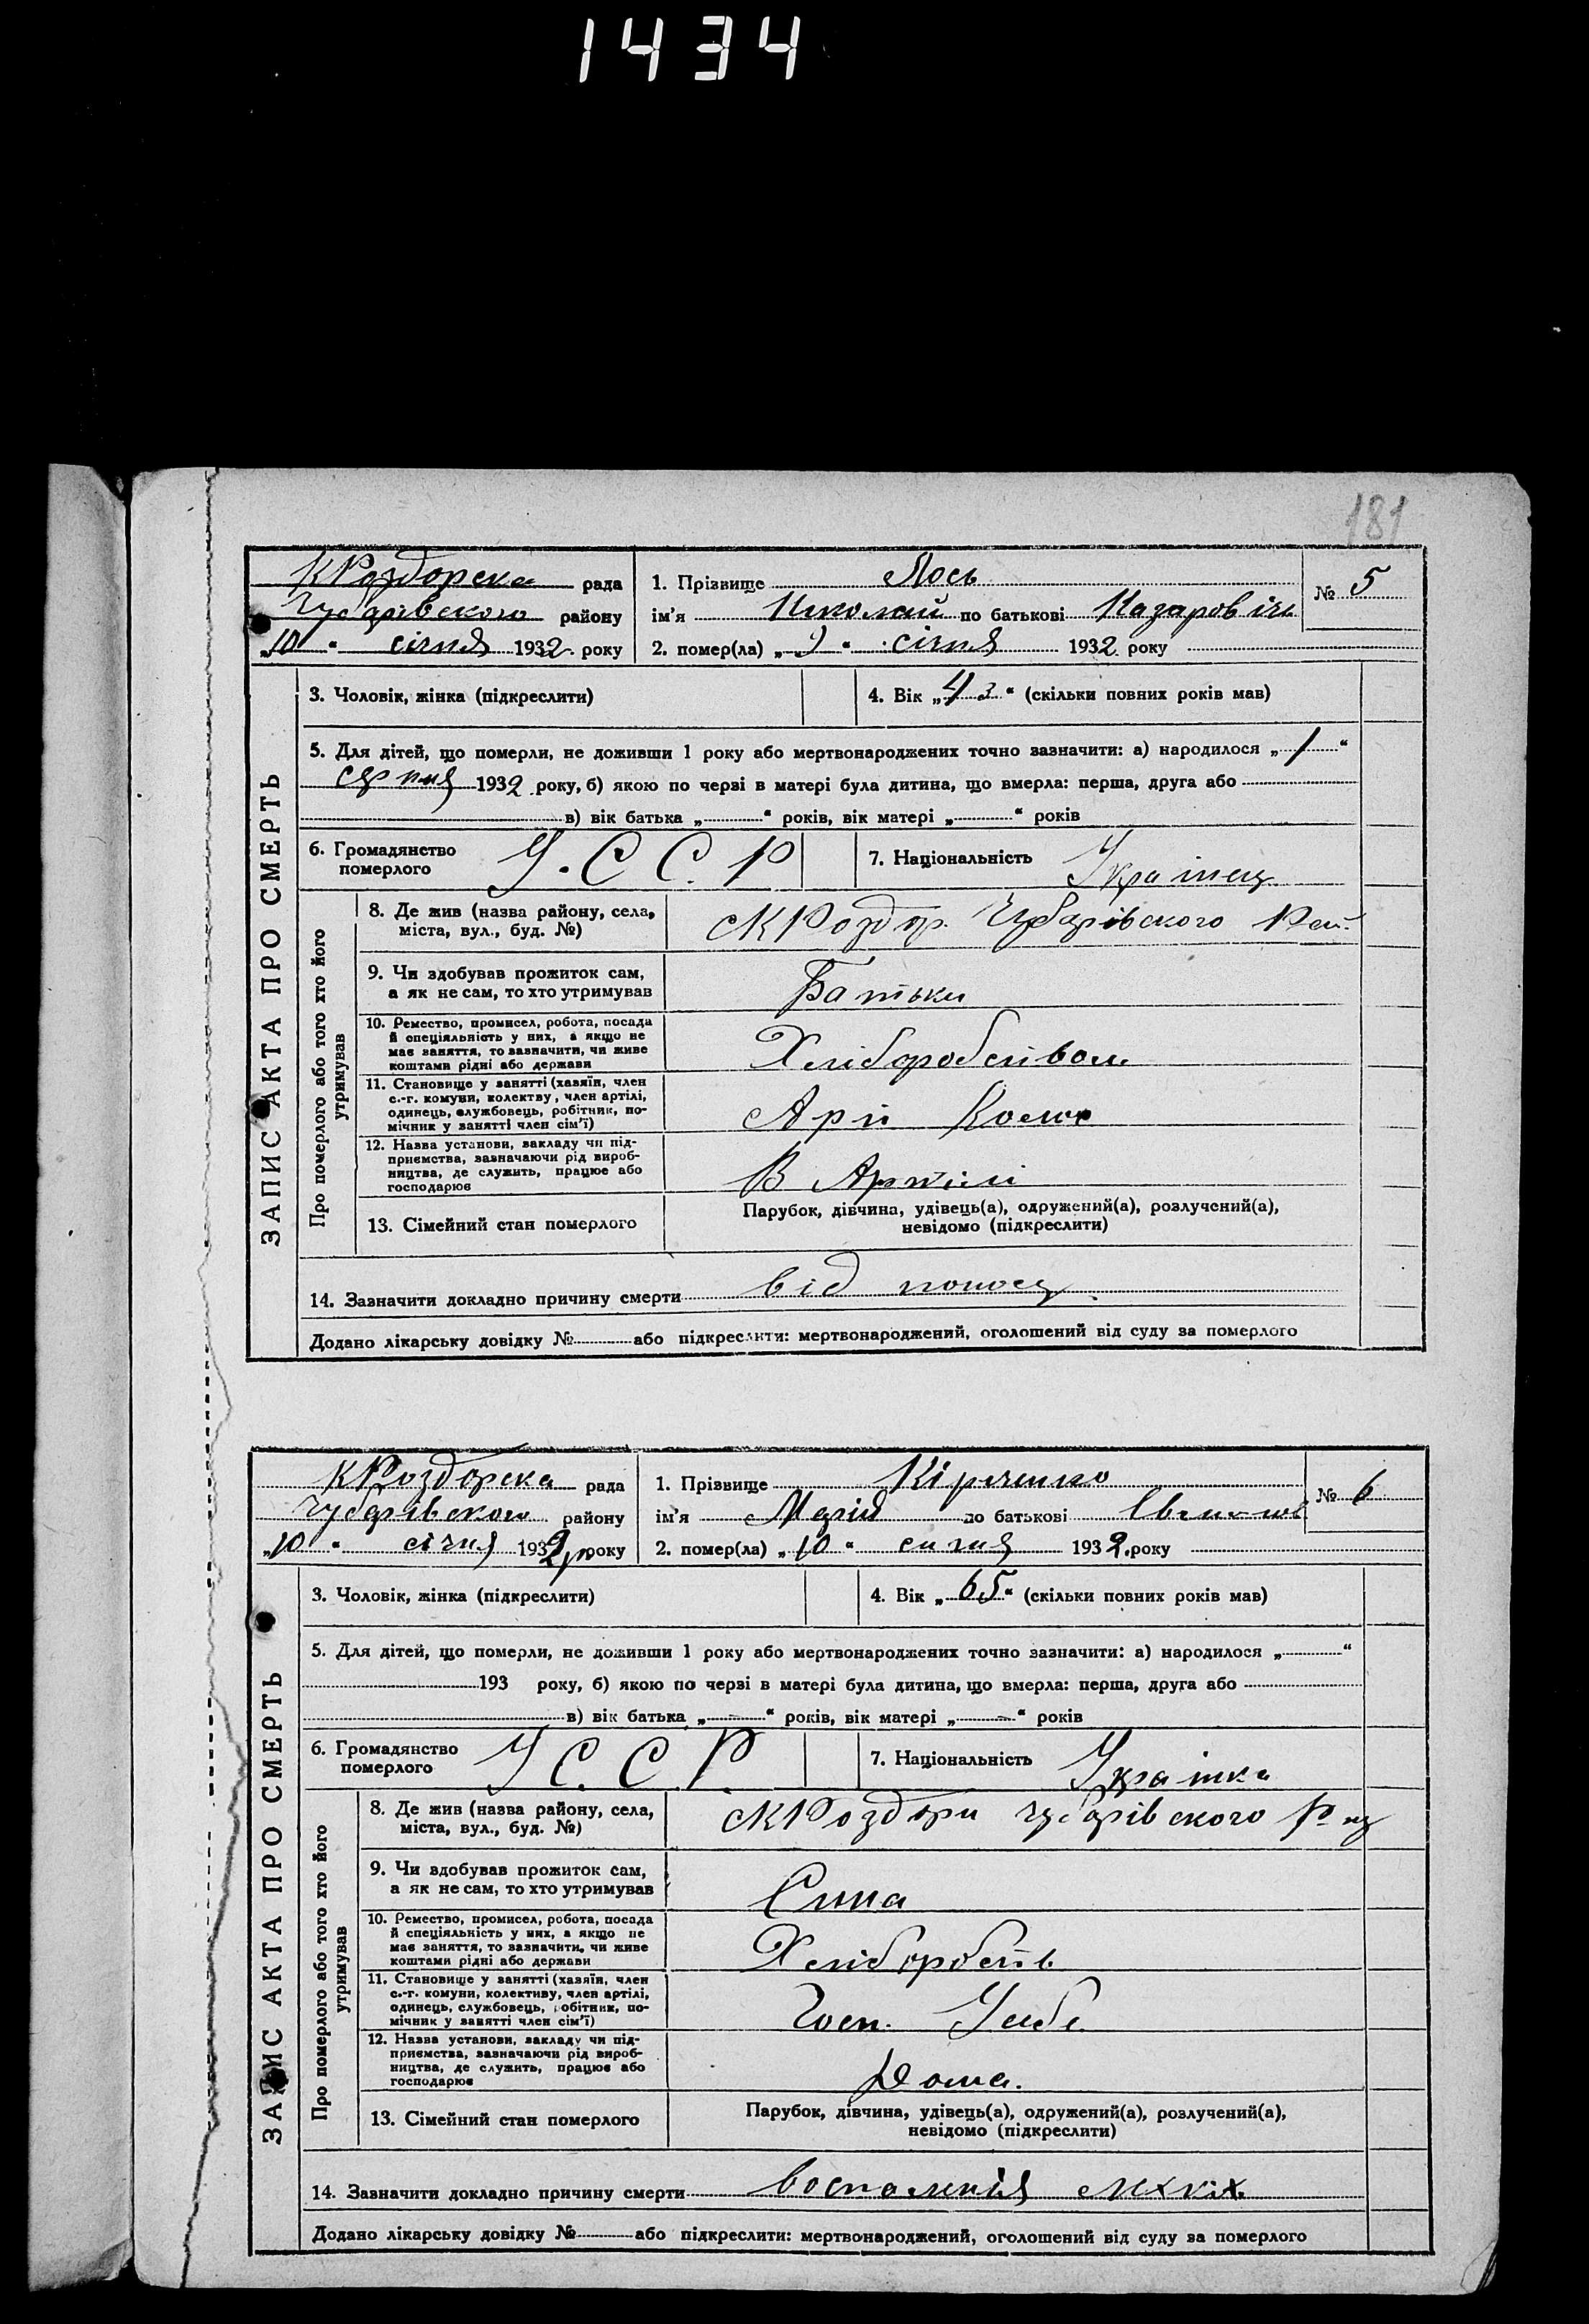 1434
181
КРоздорска рада
Чубарівского району
„10“ січня 1932 року
1. Прізвище Лось
ім’я Николай по батькові Назаровіч
2. помер(ла) „9“ січня 1932 року
№ 5
ЗАПИС АКТА ПРО СМЕРТЬ
3. Чоловік, жінка (підкреслити)
4. Вік „43“ (скільки повних років мав)
5. Для дітей, що померли, не доживши 1 року або мертвонароджених точно зазначити: а) народилося „1“
серпня 1932 року, б) якою по черзі в матері була дитина, що вмерла: перша, друга або
в) вік батька „ “ років, вік матері „ “ років
6. Громадянство
померлого
У.С.С.Р
7. Національність Українец
Про померлого або того хто його
утримував
8. Де жив (назва району, села,
міста, вул., буд. №)
с КРоздор. Чубарівского Рай.
9. Чи здобував прожиток сам,
а як не сам, то хто утримував
Батьки
10. Ремество, промисел, робота, посада
й спеціяльність у них, а якщо не
має заняття, то зазначити, чи живе
коштами рідні або держави
Хліборобством
11. Становище у занятті (хазяїн, член
с.-г. комуни, колектву, член артілі,
одинець, службовець, робітник, по-
мічник у занятті член сім’ї)
12. Назва установи, закладу чи під-
приємства, зазначаючи рід вироб-
ництва, де служить, працює або
господарює
В Артілі
13. Сімейний стан померлого
Парубок, дівчина, удівець(а), одружений(а), розлучений(а),
невідомо (підкреслити)
14. Зазначити докладно причину смерти від поносу
Додано лікарську довідку № або підкреслити: мертвонароджений, оголошений від суду за померлого
КРоздорска рада
Чубарівского району
„10“ січня 1932 року
1. Прізвище Кірченко
ім’я Марія по батькові
2. помер(ла) „10“ сичня 1932 року
№ 6
ЗАПИС АКТА ПРО СМЕРТЬ
3. Чоловік, жінка (підкреслити)
4. Вік „65“ (скільки повних років мав)
5. Для дітей, що померли, не доживши 1 року або мертвонароджених точно зазначити: а) народилося „ “
193 року, б) якою по черзі в матері була дитина, що вмерла: перша, друга або
в) вік батька „ “ років, вік матері „ “ років
6. Громадянство
померлого
У С.С.Р.
7. Національність Українка
Про померлого або того хто його
утримував
8. Де жив (назва району, села,
міста, вул., буд. №)
с КРоздори Чубарівского
9. Чи здобував прожиток сам,
а як не сам, то хто утримував
Сина
10. Ремество, промисел, робота, посада
й спеціяльність у них, а якщо не
має заняття, то зазначити, чи живе
коштами рідні або держави
Хліборобств
11. Становище у занятті (хазяїн, член
с.-г. комуни, колективу, член артілі,
одинець, службовець, робітник, по-
мічник у занятті член сім’ї)
Госп.
12. Назва установи, закладу чи під-
приємства, зазначаючи рід вироб-
ництва, де служить, працює або
господарює
Дома.
13. Сімейний стан померлого
Парубок, дівчина, удівець(а), одружений(а), розлучений(а),
невідомо (підкреслити)
14. Зазначити докладно причину смерти воспаленія
Додано лікарську довідку № або підкреслити: мертвонароджений, оголошений від суду за померлого